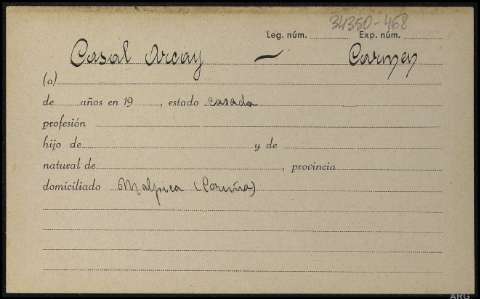 34350-468
Leg. núm. Exp. núm.
Casal Arcay — Carmen
(a)
de años en 19 , estado casada
profesión
hijo de y de
natural de , provincia
domiciliado Malpica (Coruña)
ARG